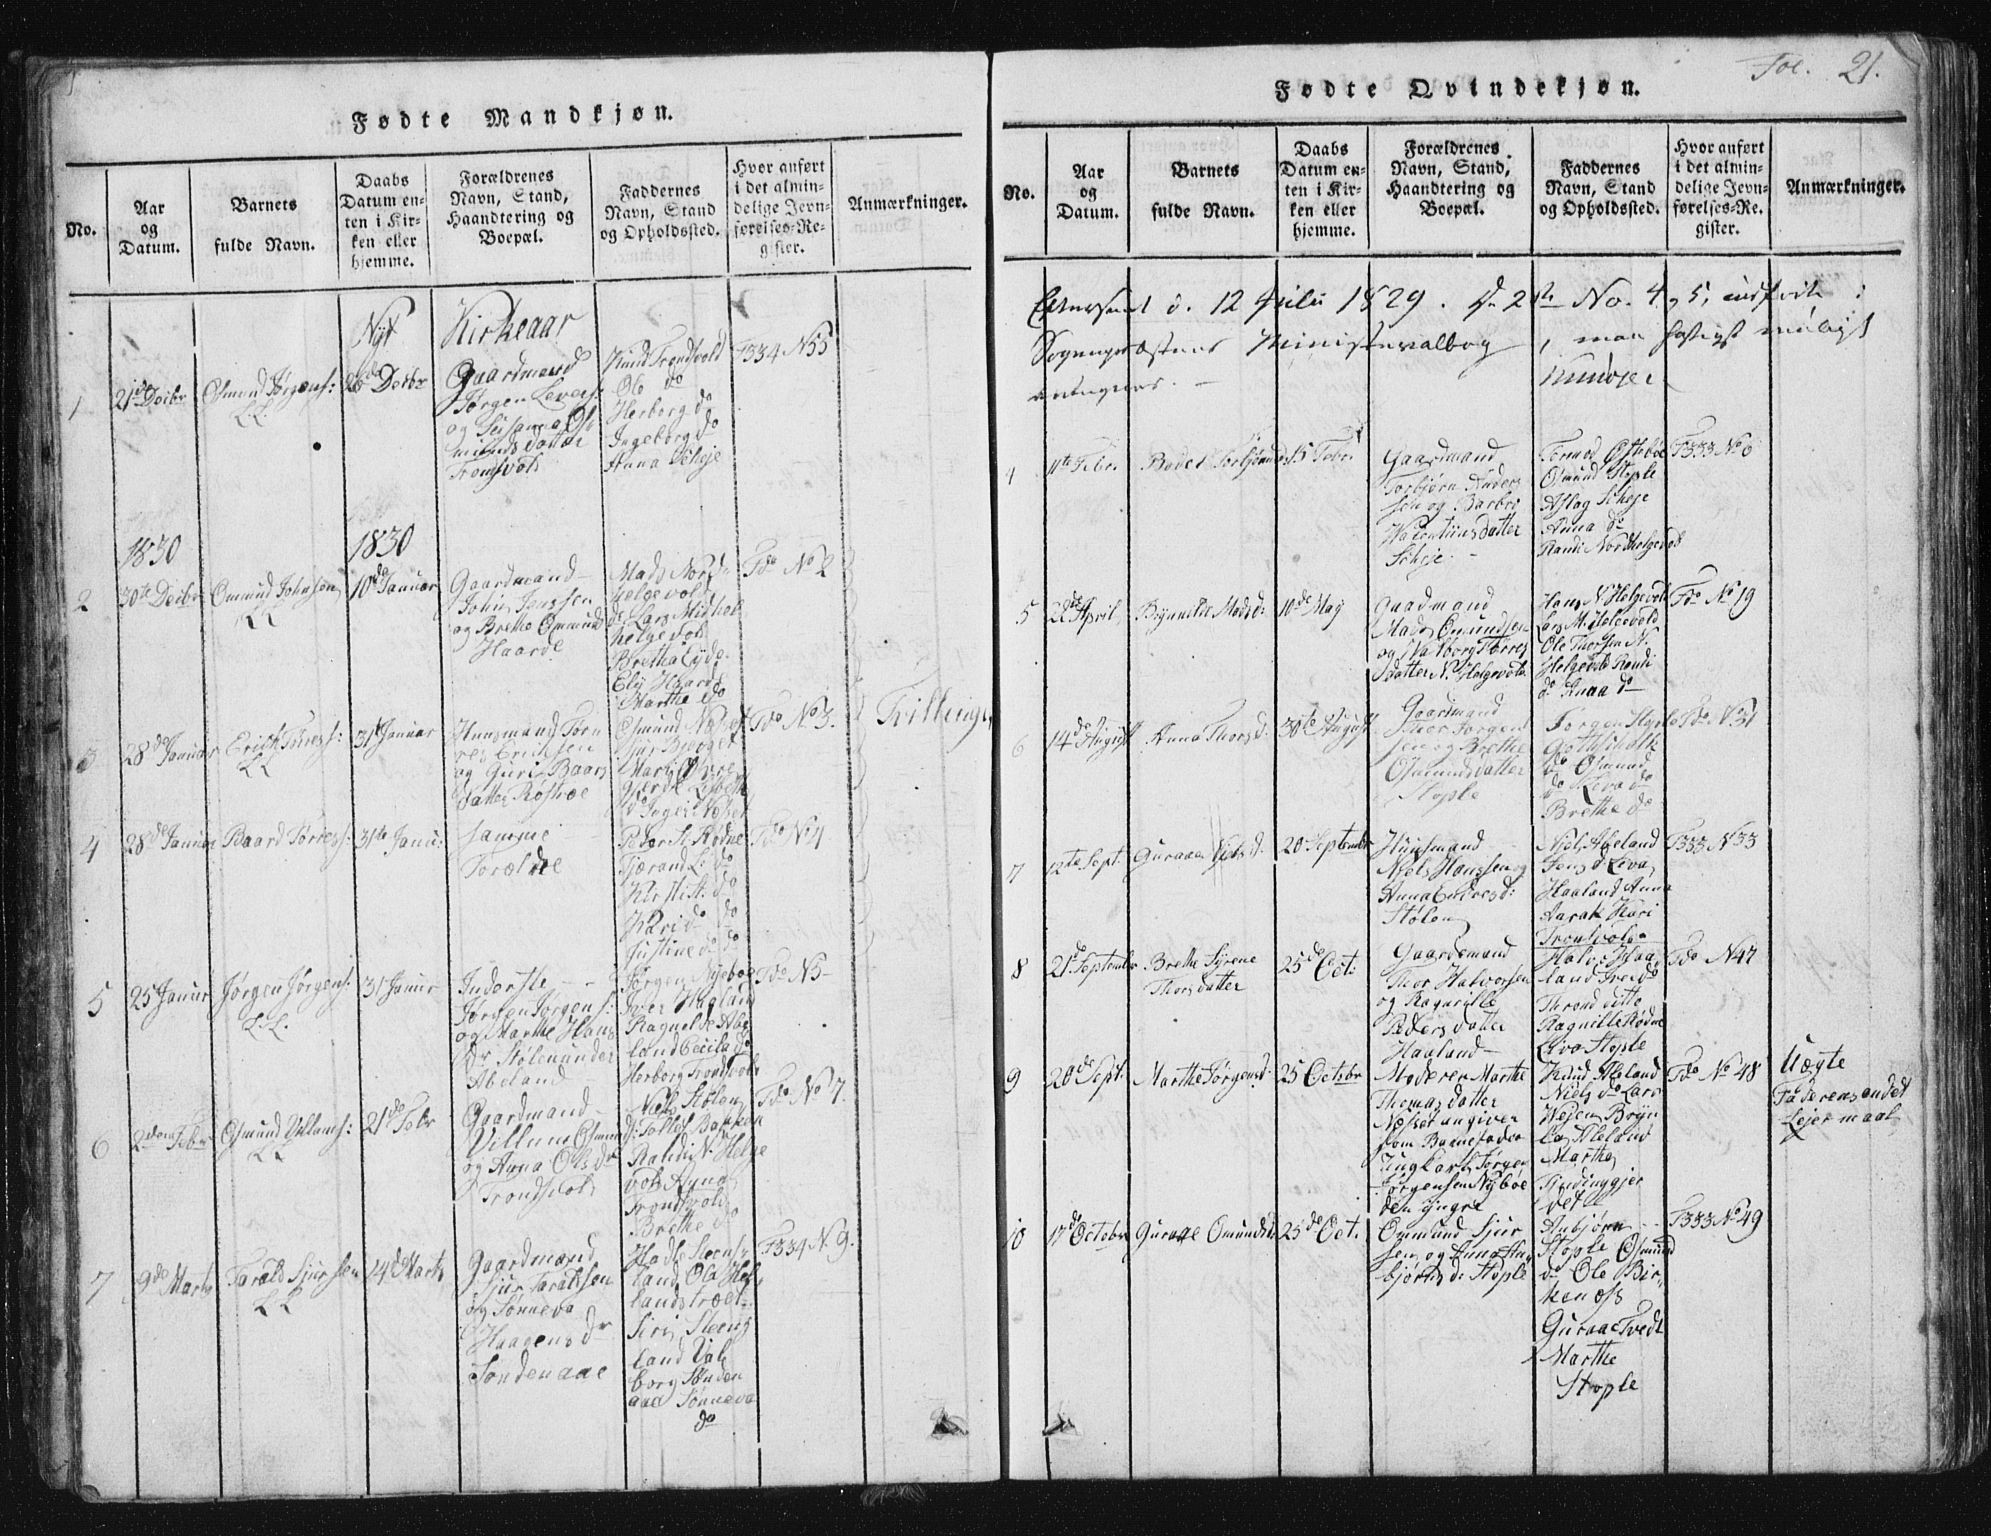 Fol. 21.
Fødte Mandkjøn.
No.
Aar
og
Datum.
Barnets
fulde Navn.
Daabs
Datum en-
ten i Kir-
ken eller
hjemme.
Forældrenes
Navn, Stand,
Haandtering og
Boepæl.
Faddernes
Navn, Stand
og Opholdssted.
Hvor anført
i det almin-
delige Jevn-
førelses-Re-
gister.
Anmærkninger.
Nyt Kirkeaar
1
21de Decbr
Osmund Jørgens:
LL
26de Decbr
Gaardmand
Jørgen Levers:
og Susanna Os-
munds datter
Tronsvol
Knud Trondsvold
Ole do
Herborg do
Ingeborg do
Anna Scheje
F334 N55
1830
1830
2
30te Decbr
Ommund Johnsen
LL
10de Januar
Gaardmand
John Jenssen
og Brethe Ommunds
Haarde
Mads Nord-
helgevold
Lars Midthel
helgevold
Bretha Eyde
Ely Haarde
Marthe do
Fdo No 2
3
28de Januar
Erich Tørres:
LL
31 Januar
Huusmand Tør-
res Erichsen
og Guri Baars
datter Røstøe
Osmund Næset
Sjur Bjerger
Mari Øvre
gjerde Lisbeth
do Inger Næset
Fdo No 3.
Tvillinger
4
28de Januar
Baard Tørress:
31te Janu:
samme
Forældre
Peder St. Rødne
Tjærand L. do
Kirsti St. do
Kari do do
Justine do do
Fdo No 4
5
25 Januar
Jørgen Jørgens:
LL.
31 Januar
Inderste
Jørgen Jørgens:
og Marthe Hans
Dr Stølen under
Abeland
Jørgen Nyebøe
Iver Hagland
Ragnelde Abe
land Cecila do
Herborg Trondsvold
Fdo No 5
6
2den Febr
Osmund Villums:
LL
21de Febr
Gaardmand
Villum Osmun
og Anna Ols dr
Trondsvol
Niels Stølen
Tollef Bakken
Randi N. Helge
vold Anna
Trondsvold
Brethe do
Fdo No 7.
7
9de Marts
Tarald Sjursen
LL
14de Marts
Gaardmand
Sjur Taraldsen
og Sønneva
Haagens Dr
Søndenaae
Hadle Steens-
land Ola Hel
landstræet
Siri Steens
land Val
borg Sønden
aae Sønneva
do
F334 N. 9.
Fødte Qvindekjøn.
No.
Aar
og
Datum.
Barnets
fulde Navn.
Daabs
Datum en-
ten i Kir-
ken eller
hjemme.
Forældrenes
Navn, Stand,
Haandtering og
Boepæl.
Faddernes
Navn, Stand
og Opholdssted.
Hvor anført
i det almin-
delige Jevn-
førelses-Re-
gister.
Anmærkninger.
d. 12 Julii 1829. No. 4 og 5,
Sognepræstens Ministerialbog,
4
11te Febr.
Torbjørnsd:
15 Febr.
Gaardmand
Torbjørn Anders
sen og Barbro
Valentins datter
Scheje
Tormod Østebøe
Osmund Stople
Aslag Scheje
Anna do
Randi Nordhelgevold
F333 No 6
5
22de April
Brynnilde Madsd:
10de May
Gaardmand
Mads Omundsen
og Valborg Tørres
datter N. Helgevold
Hans N. Helgevold
Lars M. Helgevold
Ole Thorsen N.
Helgevold Randi
do Anna do
Fdo No 19
6
14de August
Anna Thorsd:
30te August
Gaardmand
Thor Jørgen
sen og Brethe
Osmunds datter
Stople
Jørgen Stople
Gothskalk
do Osmund
do Leva do
Brethe do
Fdo No 31
7
12te Sept.
Guraae Nielsd:
20 September
Huusmand
Niels Hanssen og
Anna Endresd:
Stølen
Niels Abeland
Jens do Leva
Haaland Anna
Aarak Kari
Trondsvold
F333 N33
8
21de September
Brethe Syrene
Thors datter
25de Oct:
Gaardmand
Thor Halvorsen
og Ragnille
Peders datter
Haaland
Halvor Haa
land Iver do
Thrond ditto
Ragnille Rødne
Liva Stople
Fdo N47
9
20de Sept.
Marthe Jørgensd:
25 Octobr
Moderen Marthe
Thomas datter
Næset angiver
som Barnefader
Ungkarl Jørgen
Jørgensen Nybøe
den yngre
Knud Abeland
Niels do Lars
Heden Bryn
la Abeland
Marthe
Tindinggjer
det
Fdo No 48
Uægte
Faderens andet
Lejermaal
10
17de October
Guraae Omundsd:
25de Oct.
Ommund Sjur
sen og Anna An
bjørns d: Stople
Anbjørn
Stople Osmund
do Ole Bir-
kenæss
Guraae Tvedt
Marthe
Stople
F333 No 49